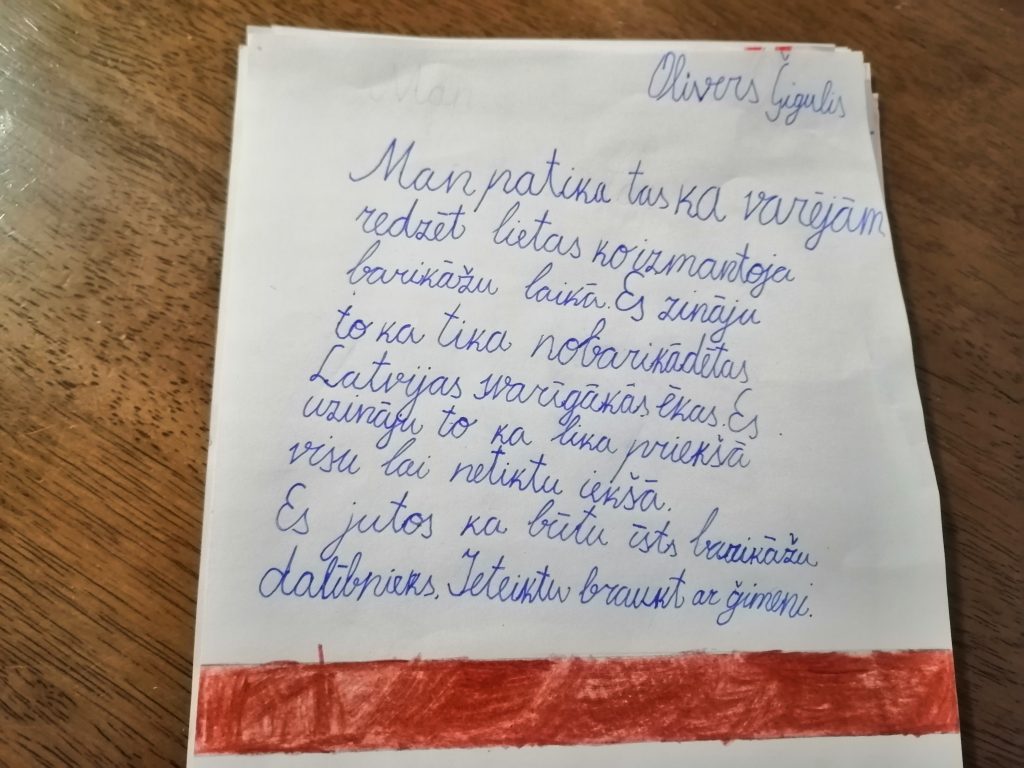 Olivers Ģigulis
Man patika tas ka varējām
redzēt lietas ko izmantoja
barikāžu laikā. Es zināju
to ka tika nobarikādētas
Latvijas svarīgākās ēkas. Es
uzināju to ka lika priekšā
visu lai netiktu iekšā.
Es jutos ka būtu īsts barikāžu
dalībnieks. Ieteiktu braukt ar ģimeni.